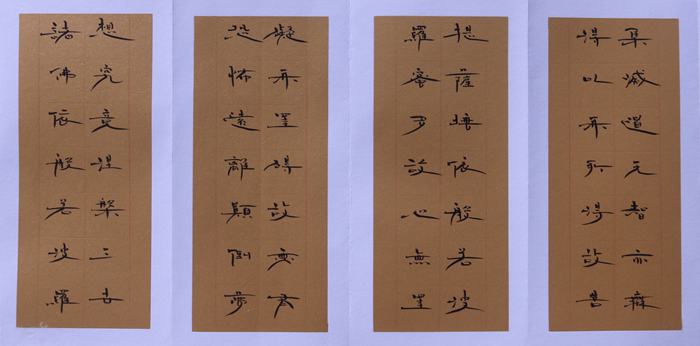 集滅道无智亦無
得以無所得故菩
提薩埵依般若波
羅蜜多故心無罣
礙無罣礙故無有
恐怖遠離顛倒夢
想究竟涅槃三世
諸佛依般若波羅